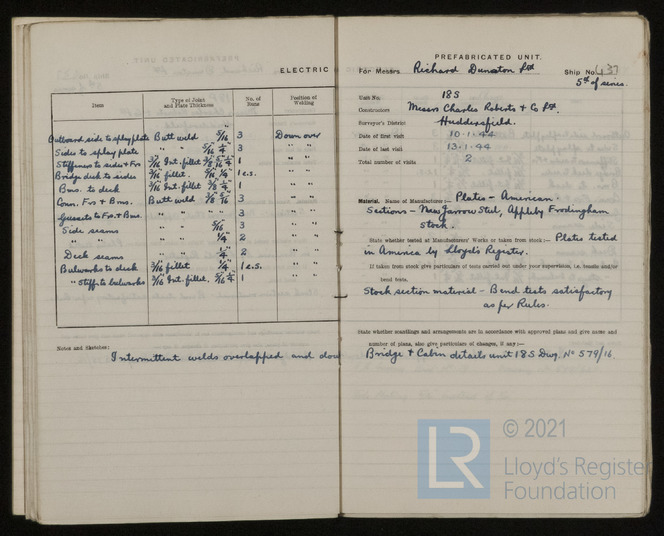 ELECTRIC
Item
Type of Joint and Plate Thickness
No. of Runs
Position of Welding
Outboard side to splay plate Butt weld 5/16" 3 Down over
Sides to splay plate " " 5/16" 1/4" 3 " "
Stiffeners to sides & Frs 3/16" Int. fillet 3/8" 5/16" 1/4" 1 " "
Bridge deck to sides 3/16" fillet. 5/16" 1/4" 1 e.s. " "
Bms. to deck 3/16" Int. fillet 3/8" 1/4" 1 " "
Conn. Frs & Bms. Butt weld 3/8" 5/16" 3 " "
Gussets to Frs. & Bms. " " " " 3 " "
Side seams " " 5/16" 3 " "
" " " " 1/4" 2 " "
Deck seams " " 1/4" 2 " "
Bulwarks to deck 3/16" fillet 1/4" 1 e.s. " "
" Stiffs to bulwarks 3/16" Int. fillet. 5/16" 1/4" 1 " "
Notes and Sketches:
Intermittent welds overlapped and
PREFABRICATED UNIT.
For Messrs Richard Dunston Ltd Ship No. 437
5th of series.
Unit No. 18S
Constructors Messrs Charles Roberts & Co Ltd.
Surveyor's District Huddersfield.
Date of first visit 10-1-44
Date of last visit 13-1-44
Total number of visits 2
Material. Name of Manufacturer:— Plates - American.
Sections - New Jarrow Steel, Appleby Frodingham
Stock.
State whether tested at Manufacturers' Works or taken from stock:— Plates tested
in America by Lloyd's Register.
If taken from stock give particulars of tests carried out under your supervision, i.e. tensile and/or
bend tests.
Stock section material - Bend tests satisfactory
as per Rules.
State whether scantlings and arrangements are in accordance with approved plans and give name and
number of plans, also give particulars of changes, if any:—
Bridge & Cabin details unit 18S Dwg. No 579/16
© 2021
LR
Lloyd's Register
Foundation